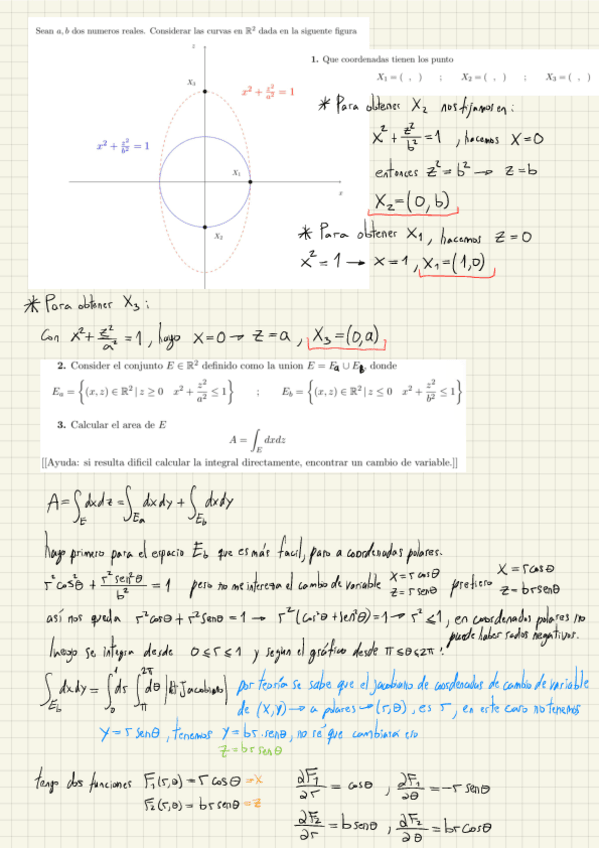 Sean a, b dos numeros reales. Considerar las curvas en ℝ² dada en la siguente figura
z
1. Que coordenadas tienen los punto
X₁ = ( , ) ; X₂ = ( , ) ; X₃ = ( , )
X₃
x² + z²/a² = 1
* Para obtener X₂ nos fijamos en:
x² + z²/b² = 1 , hacemos X=0
x² + z²/b² = 1
entonces z² = b² → z = b
X₁
X₂=(0,b)
x
X₂
* Para obtener X₁, hacemos z=0
x² = 1 → x = 1, X₁=(1,0)
* Para obtener X₃:
Con x² + z²/a² = 1, hago x=0 → z=a, X₃=(0,a)
2. Consider el conjunto E ∈ ℝ² definido como la union E = Ea ∪ Eb, donde
Ea = {(x, z) ∈ ℝ² | z ≥ 0 x² + z²/a² ≤ 1} ; Eb = {(x, z) ∈ ℝ² | z ≤ 0 x² + z²/b² ≤ 1}
3. Calcular el area de E
A = ∫E dxdz
[[Ayuda: si resulta dificil calcular la integral directamente, encontrar un cambio de variable.]]
A = ∫E dxdz = ∫Ea dxdy + ∫Eb dxdy
hago primero para el espacio Eb que es más facil, paso a coordenadas polares.
r²cos²θ + r²sen²θ/b² = 1 pero no me interesa el cambio de variable x = r cosθ z = r senθ prefiero x = r cosθ z = b r senθ
así nos queda r²cosθ + r²senθ = 1 → r²(cos²θ + sen²θ) = 1 → r² ≤ 1, en coordenadas polares no
puede haber radios negativos.
luego se integra desde 0 ≤ r ≤ 1 y según el gráfico desde π ≤ θ ≤ 2π.
∫Eb dxdy = ∫₀¹ dr ∫π²π dθ |det Jacobiano| por teoría se sabe que el jacobiano de coordenadas de cambio de variable
de (X,Y) → a polares → (r,θ), es r, en este caso no tenemos
y = r senθ, tenemos y = br·senθ, no sé que cambiara eso
z = br senθ
tengo dos funciones F₁(r,θ) = r cosθ = x
F₂(r,θ) = br senθ = z
∂F₁/∂r = cosθ , ∂F₁/∂θ = -r senθ
∂F₂/∂r = b senθ , ∂F₂/∂θ = br cosθ